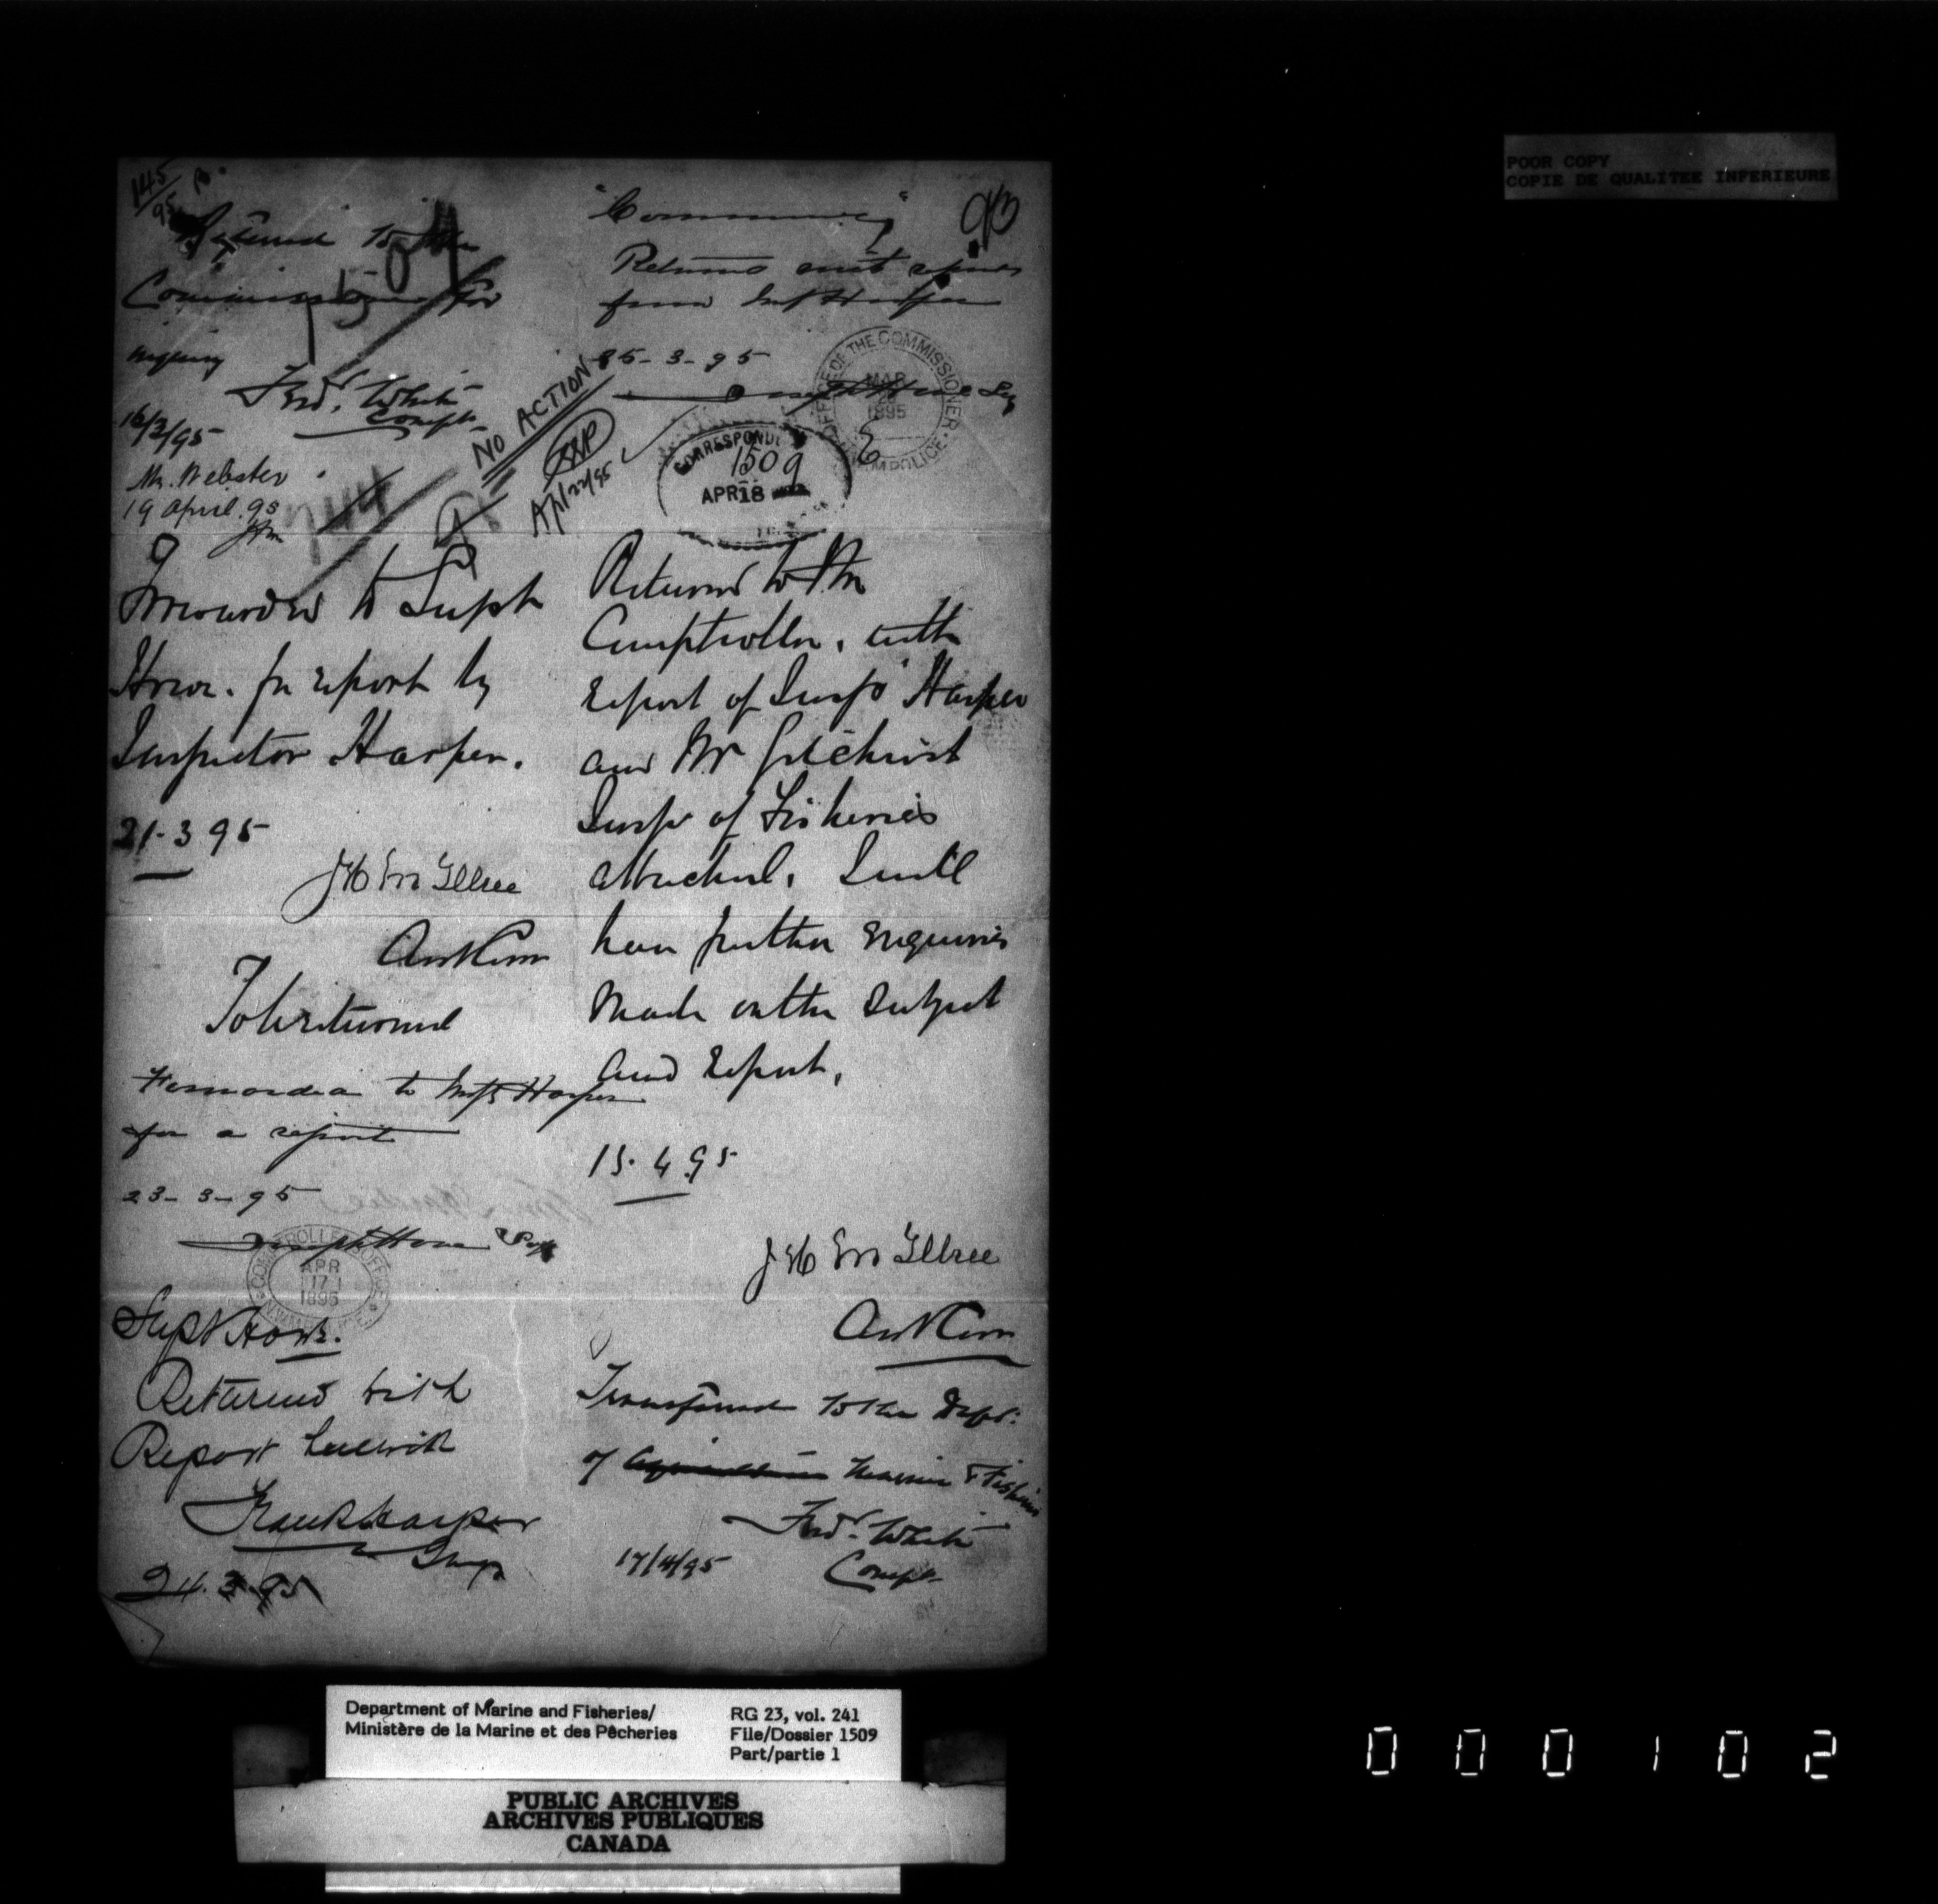 145
95
Referred to the
Commissioner for
inquiry
Fred. White
Compt.
16/3/95
Mr. Webster
19 April. 95
Forwarded to Supt
Howe. for report by
Inspector Harper.
21-3 95
J H McIllree
Asst Com
To be returned
Forwarded to Insp Harper
for a report
23-3-95
Joseph Howe Supt
COMPTROLLER'S OFFICE
APR
17
1895
N.W.M.P.
Supt Howe.
Returned with
Report herewith
Frank Harper
Insp
24.3.95
1509
NO ACTION
Apl 22/95
"Commissioner"
Returned with report
from Insp Harper
25-3-95
Joseph Howe Sup
OFFICE OF THE COMMISSIONER
MAR
28
1895
N.W.M. POLICE
CORRESPOND
1509
APR 18
Returned to the
Comptroller, with
report of Inspr Harper
and Mr Gilchrist
Inspr of Fisheries
attached. I will
have further enquiries
made on the subject
and report.
15. 4 95
J H McIllree
Asst Com
Transferred to the Dept:
of Agriculture Marine & Fisheries
Fred. White
17/4/95
Compt.
POOR COPY
COPIE DE QUALITEE INFERIEURE
Department of Marine and Fisheries/
Ministère de la Marine et des Pêcheries
RG 23, vol. 241
File/Dossier 1509
Part/partie 1
PUBLIC ARCHIVES
ARCHIVES PUBLIQUES
CANADA
000102